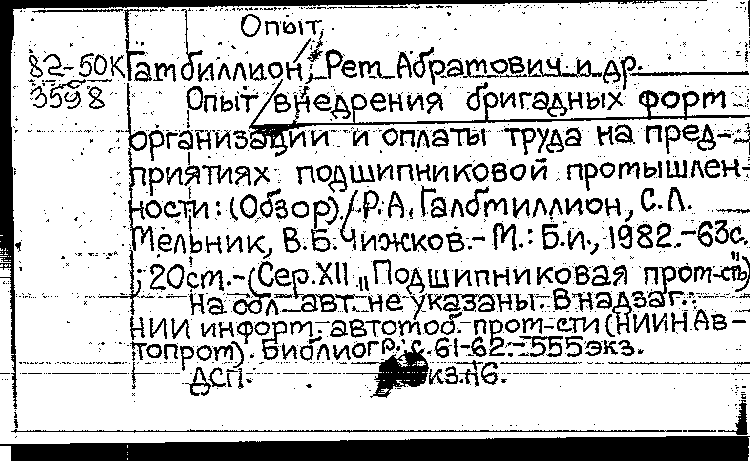 Опыт
82-50К Гамбиллион, Рем Абрамович и др.
3598 Опыт внедрения бригадных форм
организации и оплаты труда на пред-
приятиях подшипниковой промышлен-
ности: (Обзор) / Р.А. Галбмиллион, С.Л.
Мельник, В.Б. Чижков.- М.: Б.и., 1982.-63с.
; 20см.-(Сер. XII „Подшипниковая пром-сть")
На обл. авт. не указаны. В надзаг.:
НИИ информ. автомоб. пром-сти (НИИНАв-
топром). Библиогр.: с. 61-62.- 555экз.
ДСП. кз. 16.